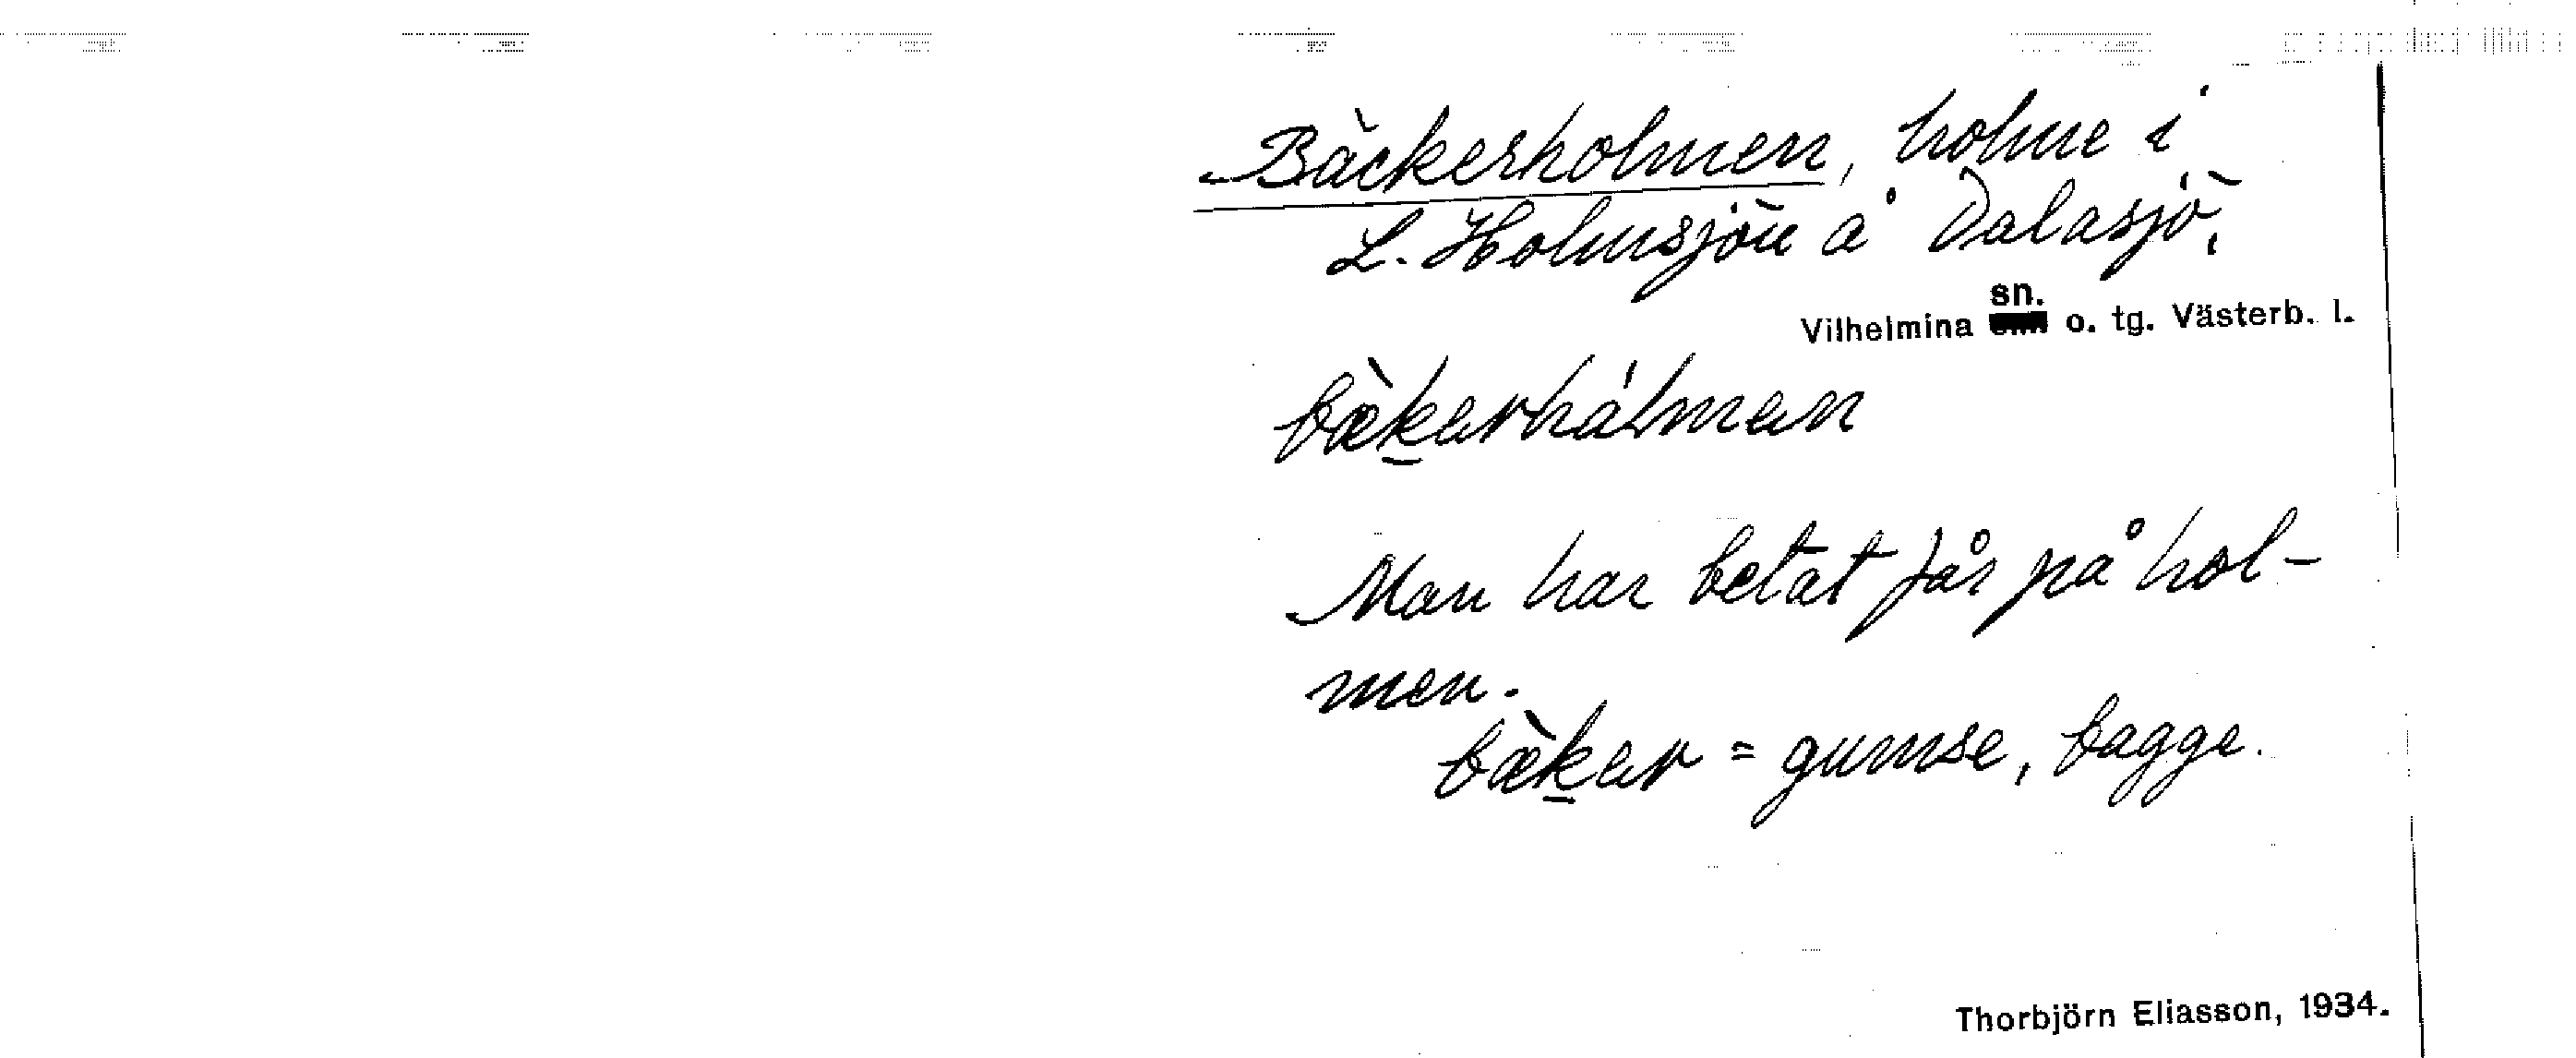 Bäckerholmen, holme i
L. Holmsjön å Dalasjö,
sn.
Vilhelmina o. tg. Västerb. l.
bæ̀k̲erhålmen
Man har betat får på hol-
men.
bæ̀k̲er = gumse, bagge.
Thorbjörn Eliasson, 1934.